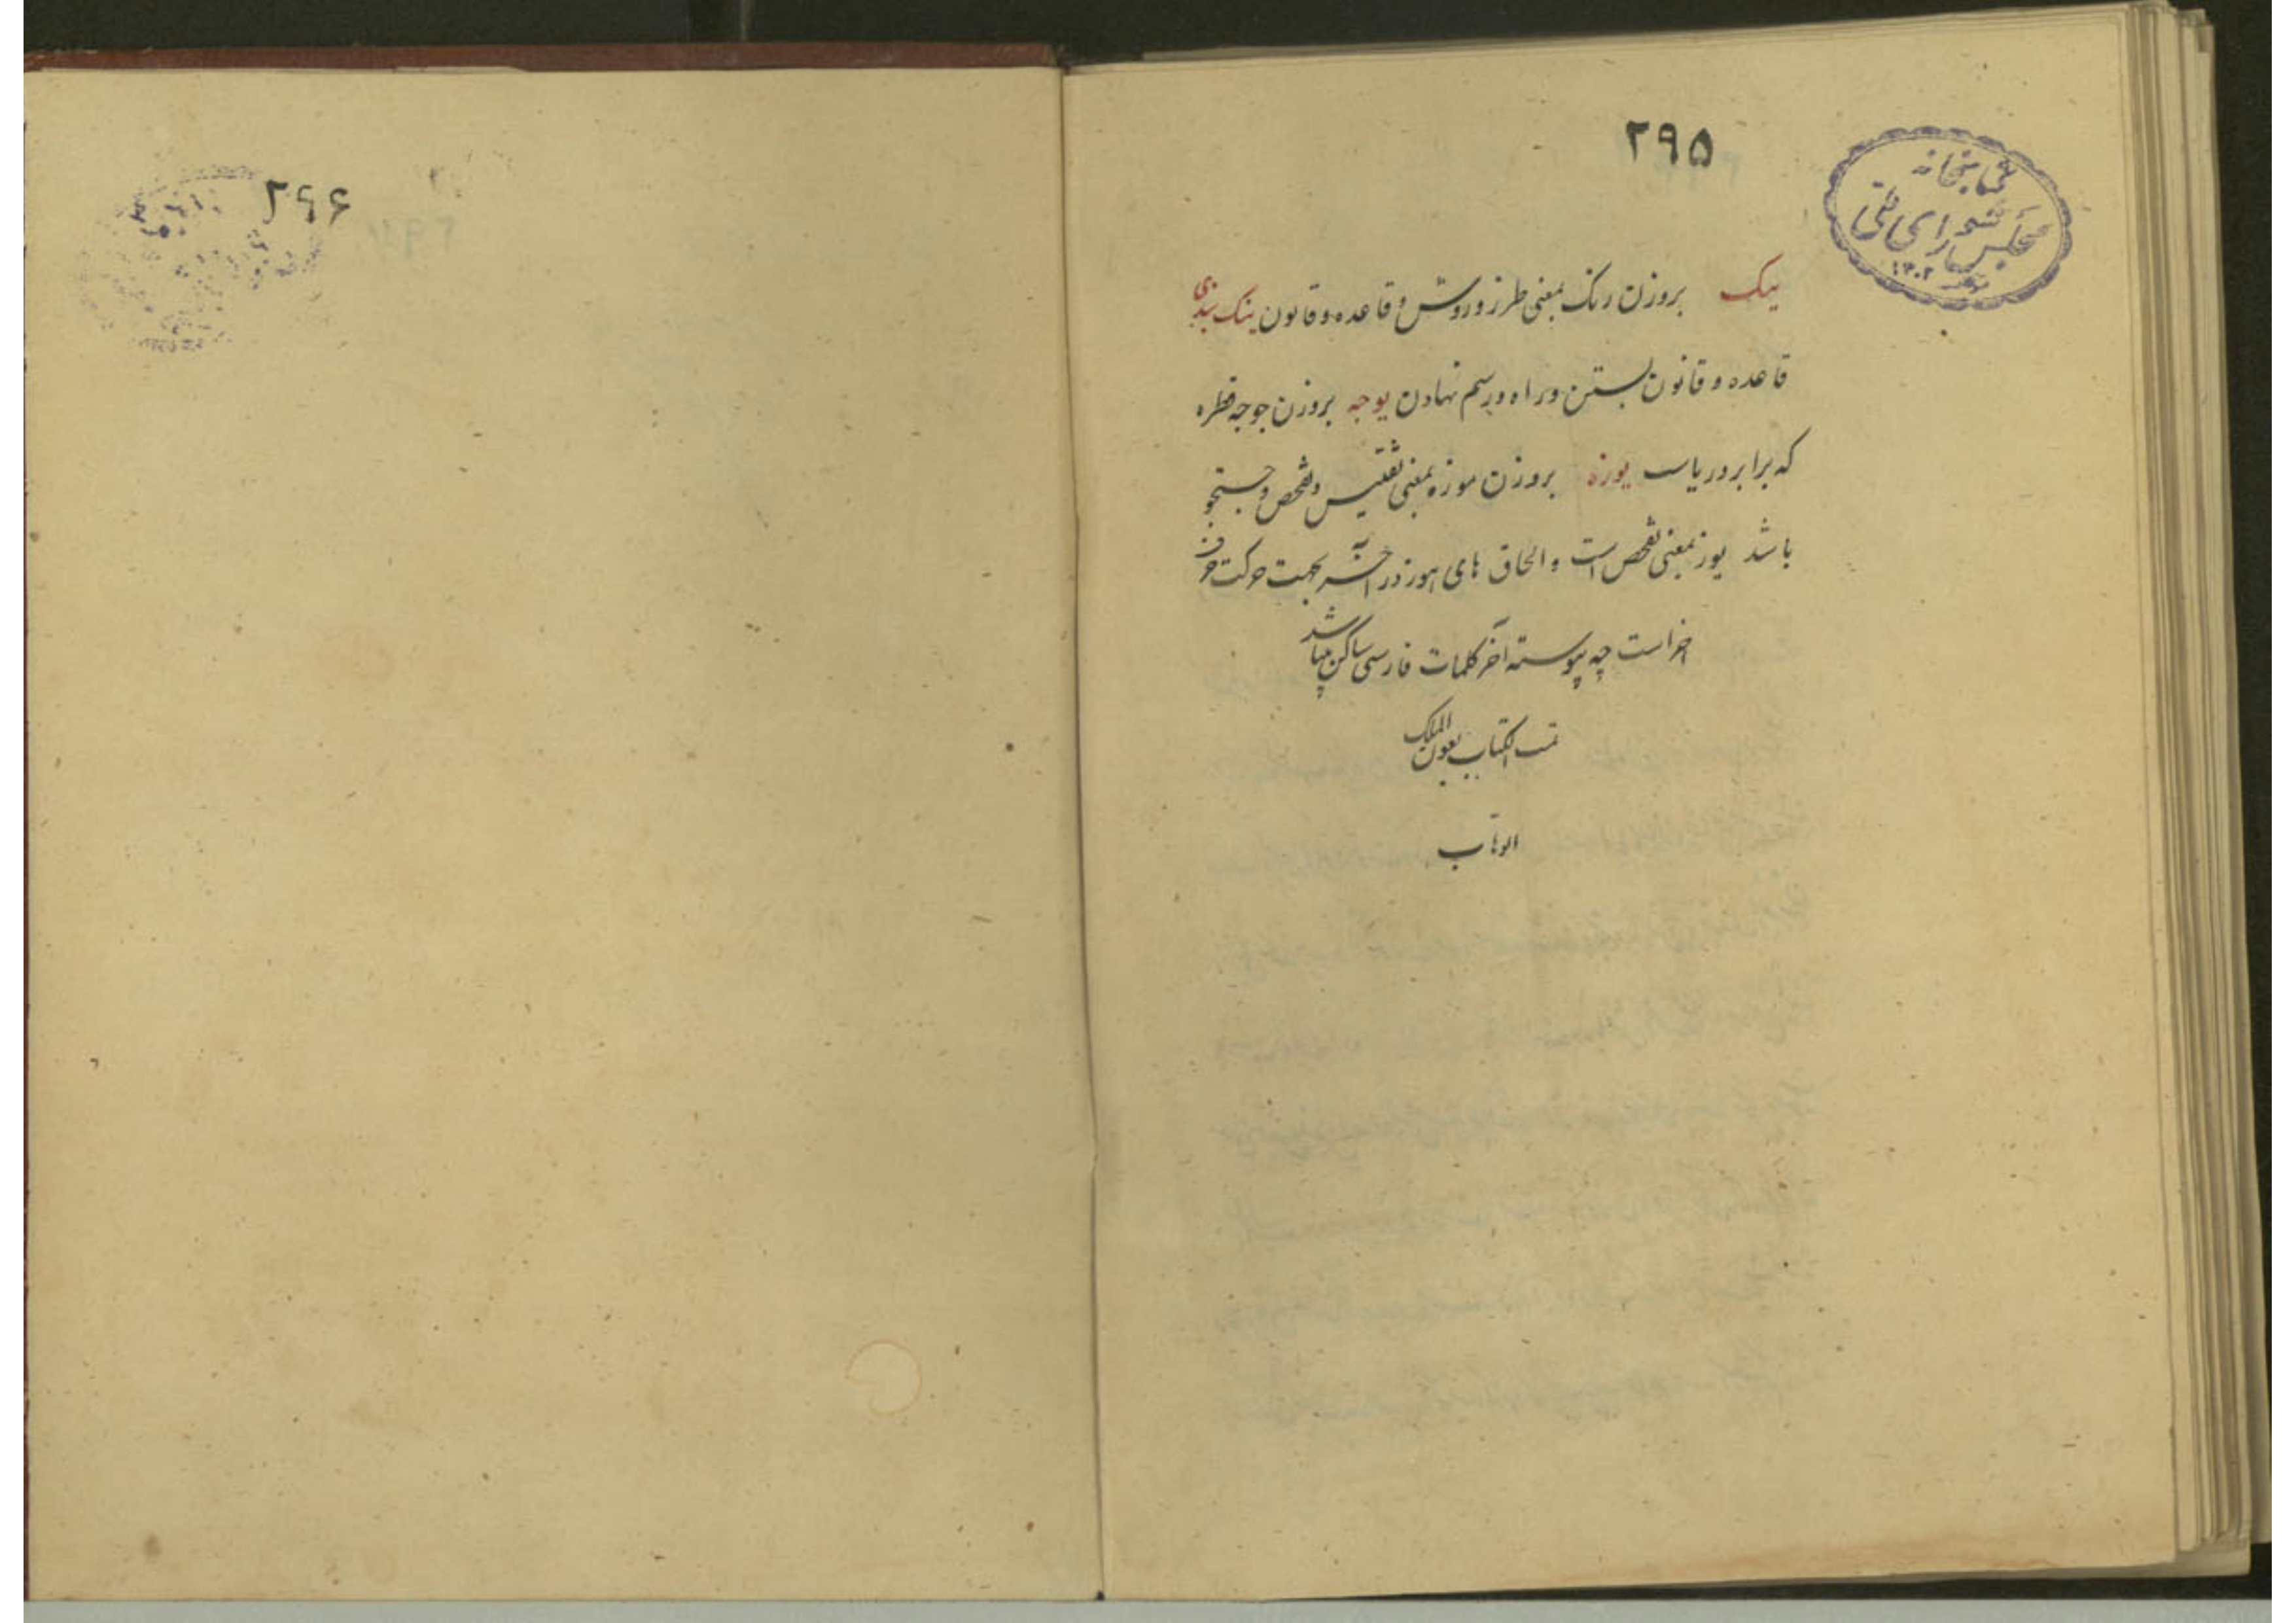 ۲۹۵
کتابخانه
مجلس شورای ملی
۱۳۰۲
ینک بروزن رنک بمعنی طرز و روش و قاعده و قانون ینک بندی
قاعده و قانون بستن و راه و رسم نهادن یوجه بروزن جوجه قطره
که برابر دریاست یوزه بروزن موزه بمعنی تفتیش و تفحص و جستجو
باشد یوز بمعنی تفحص است و الحاق های هوز در آخر بجهت حرکت حرف
اخر است چه پیوسته آخر کلمات فارسی ساکن میباشد
تمت الکتاب بعون الملک
الوهاب
۲۹۶